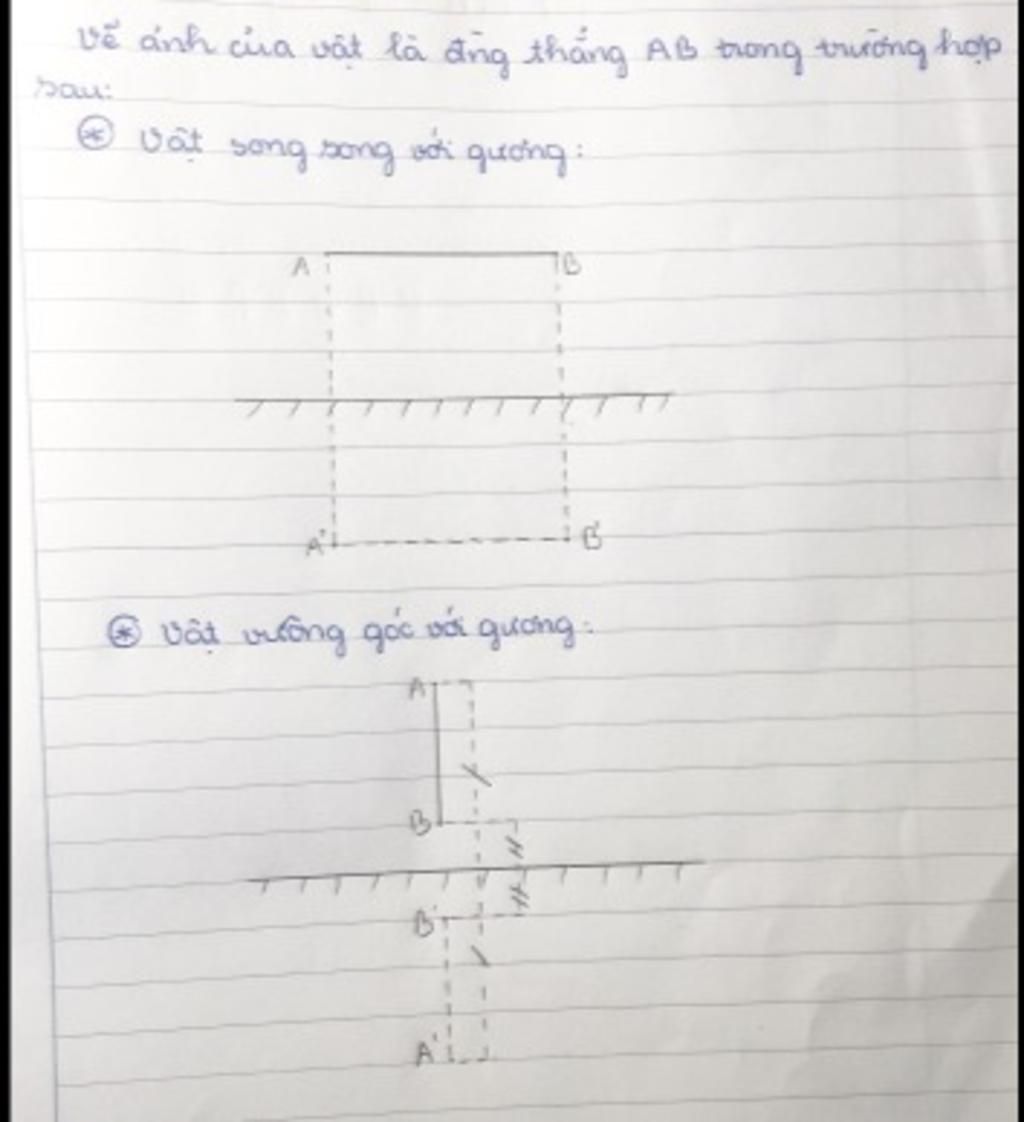 Vẽ ảnh của vật là đng thẳng AB trong trường hợp
sau:
* Vật song song với gương:
A B
A' B'
* Vật vuông góc với gương:
A
B
B'
A'